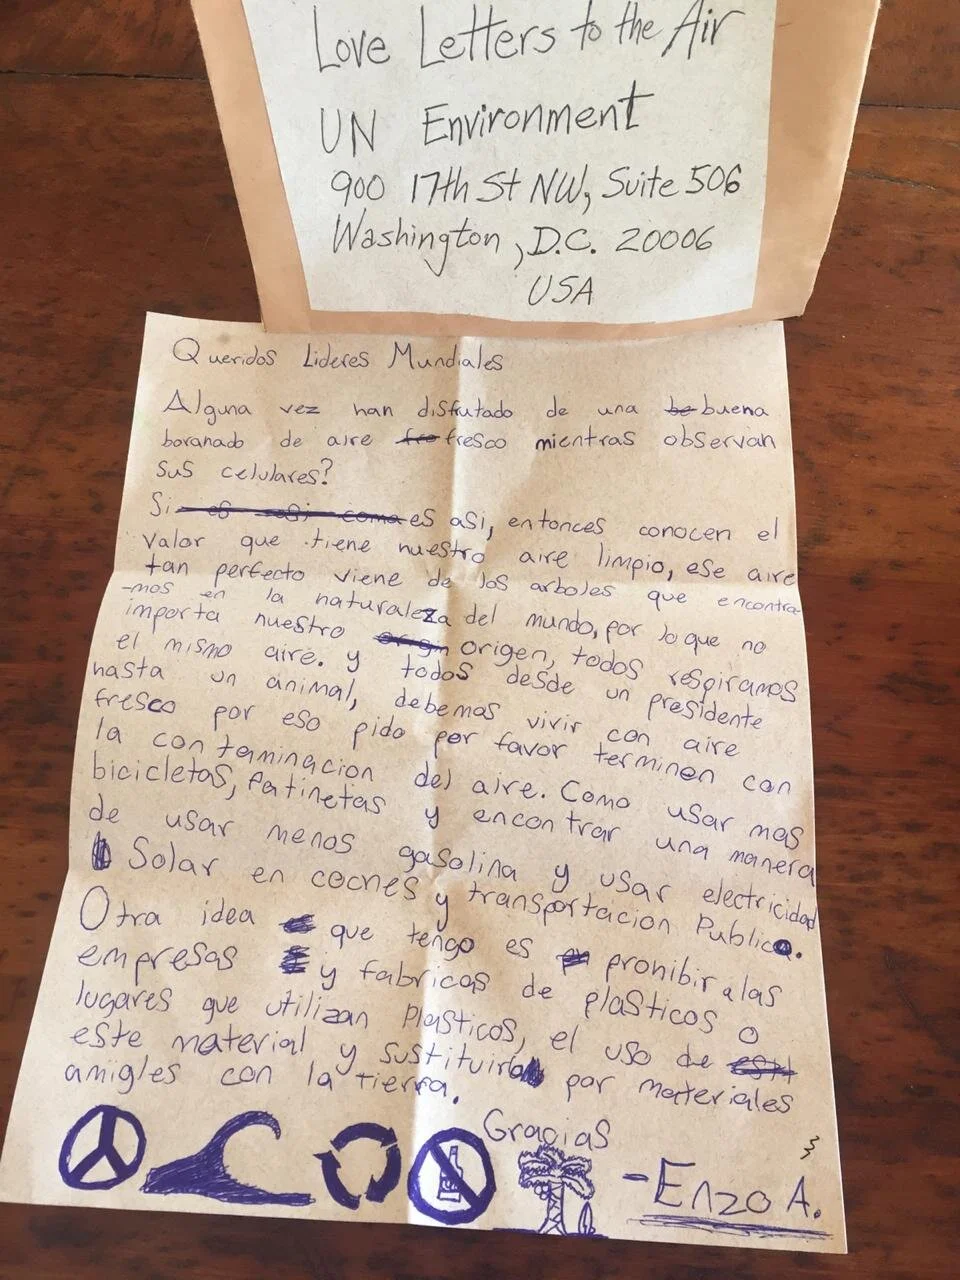 Love Letters to the Air
UN Environment
900 17th St NW, Suite 506
Washington, D.C. 20006
USA
Queridos Lideres Mundiales
Alguna vez han disfutado de una be buena
boranado de aire fre fresco mientras observan
sus celulares?
Si es asi como es asi, entonces conocen el
valor que tiene nuestro aire limpio, ese aire
tan perfecto viene de los arboles que encontra
-mos en la naturaleza del mundo, por lo que no
importa nuestro orgn origen, todos respiramos
el mismo aire. y todos desde un presidente
hasta un animal, debemos vivir con aire
fresco por eso pido por favor terminen con
la conterminacion del aire. Como usar mas
bicicletas, Patinetas y encontrar una manera
de usar menos gasolina y usar electricidad
Solar en coches y transportacion Publica.
Otra idea que tengo es prohibir a las
empresas y fabricas de plasticos o
lugares que utilizan Plasticos, el uso de est
este material y sustituirlo por materiales
amigles con la tierra.
Gracias
-Enzo A.